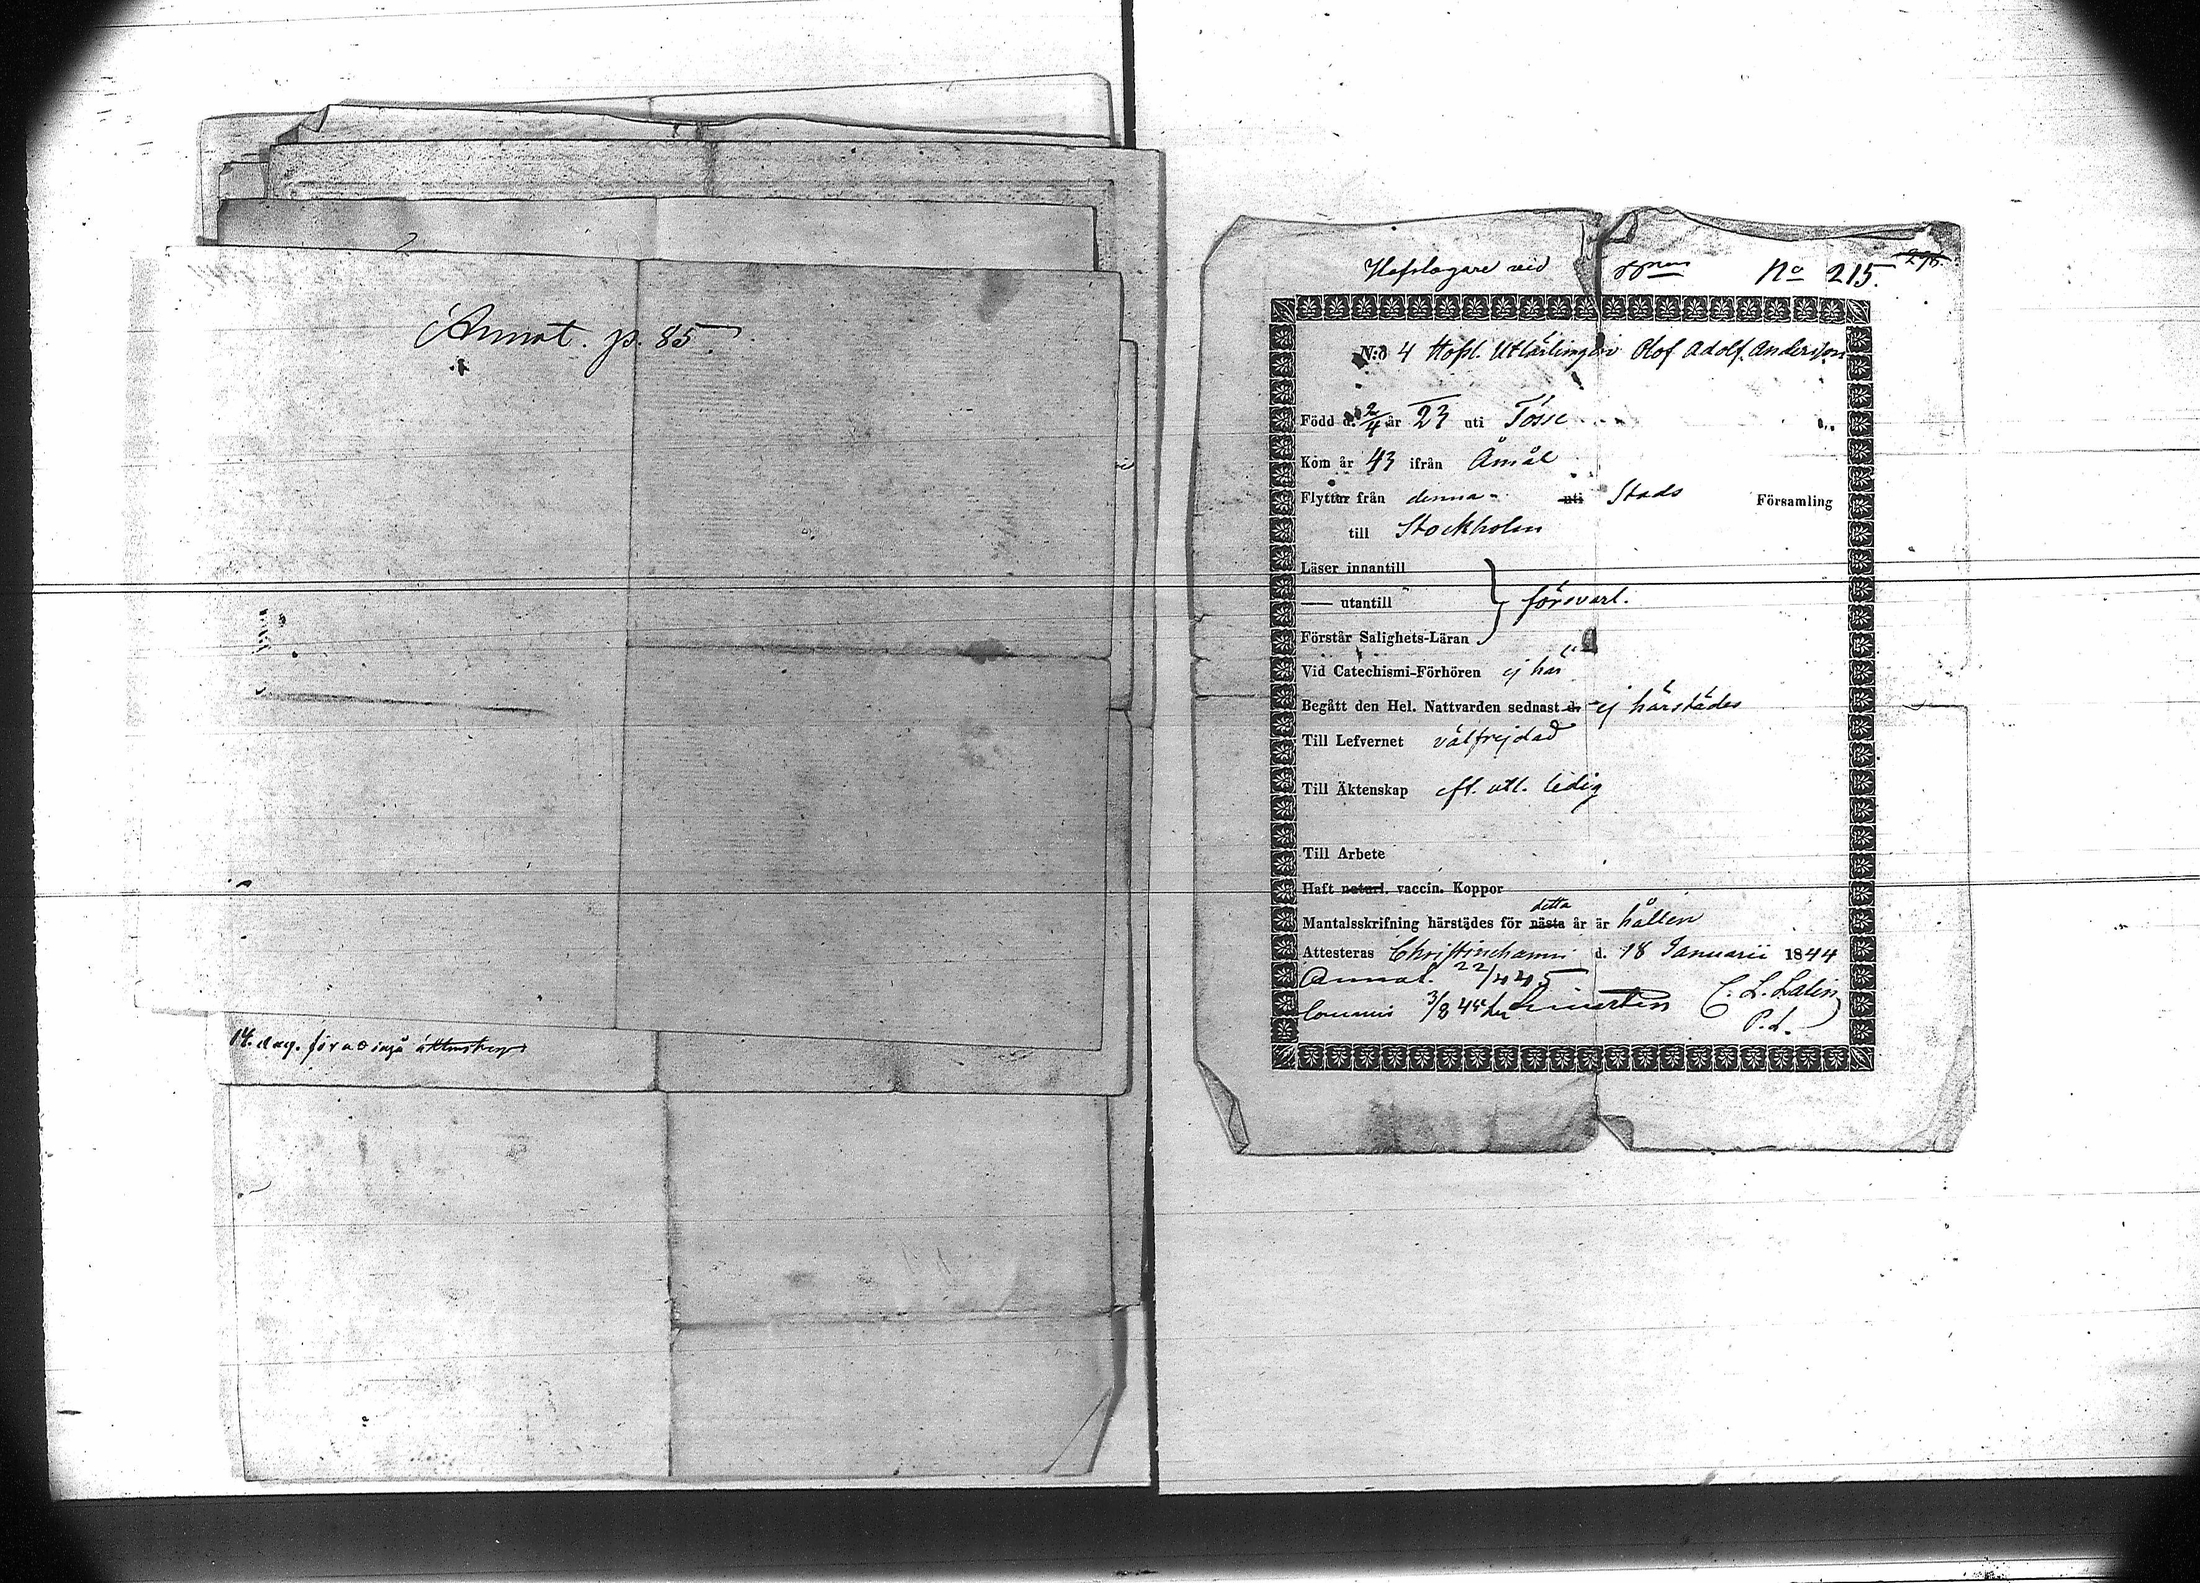 Annot. p. 85.
14. dag. för
Hofslagare vid
No 215.
N:o 4 Hofsl. Utlärlingen Olof Adolf. Anderson
Född d. 2/4 år 23 uti Tösse
Kom år 43 ifrån Åmål
Flyttar från denna uti Stads Församling
till Stockholm
Läser innantill
— utantill } försvarl.
Förstår Salighets-Läran
Vid Catechismi-Förhören ej här
Begått den Hel. Nattvarden sednast d. ej härstädes
Till Lefvernet välfrejdad
Till Äktenskap eft. utl. ledig
Till Arbete
Haft naturl. vaccin. Koppor
detta
Mantalsskrifning härstädes för nästa år är hållen
Attesteras Christinehamn d. 18 Januarii 1844
Annot. 22/4 45
3/8 45 C. L. Lalin
P. l.